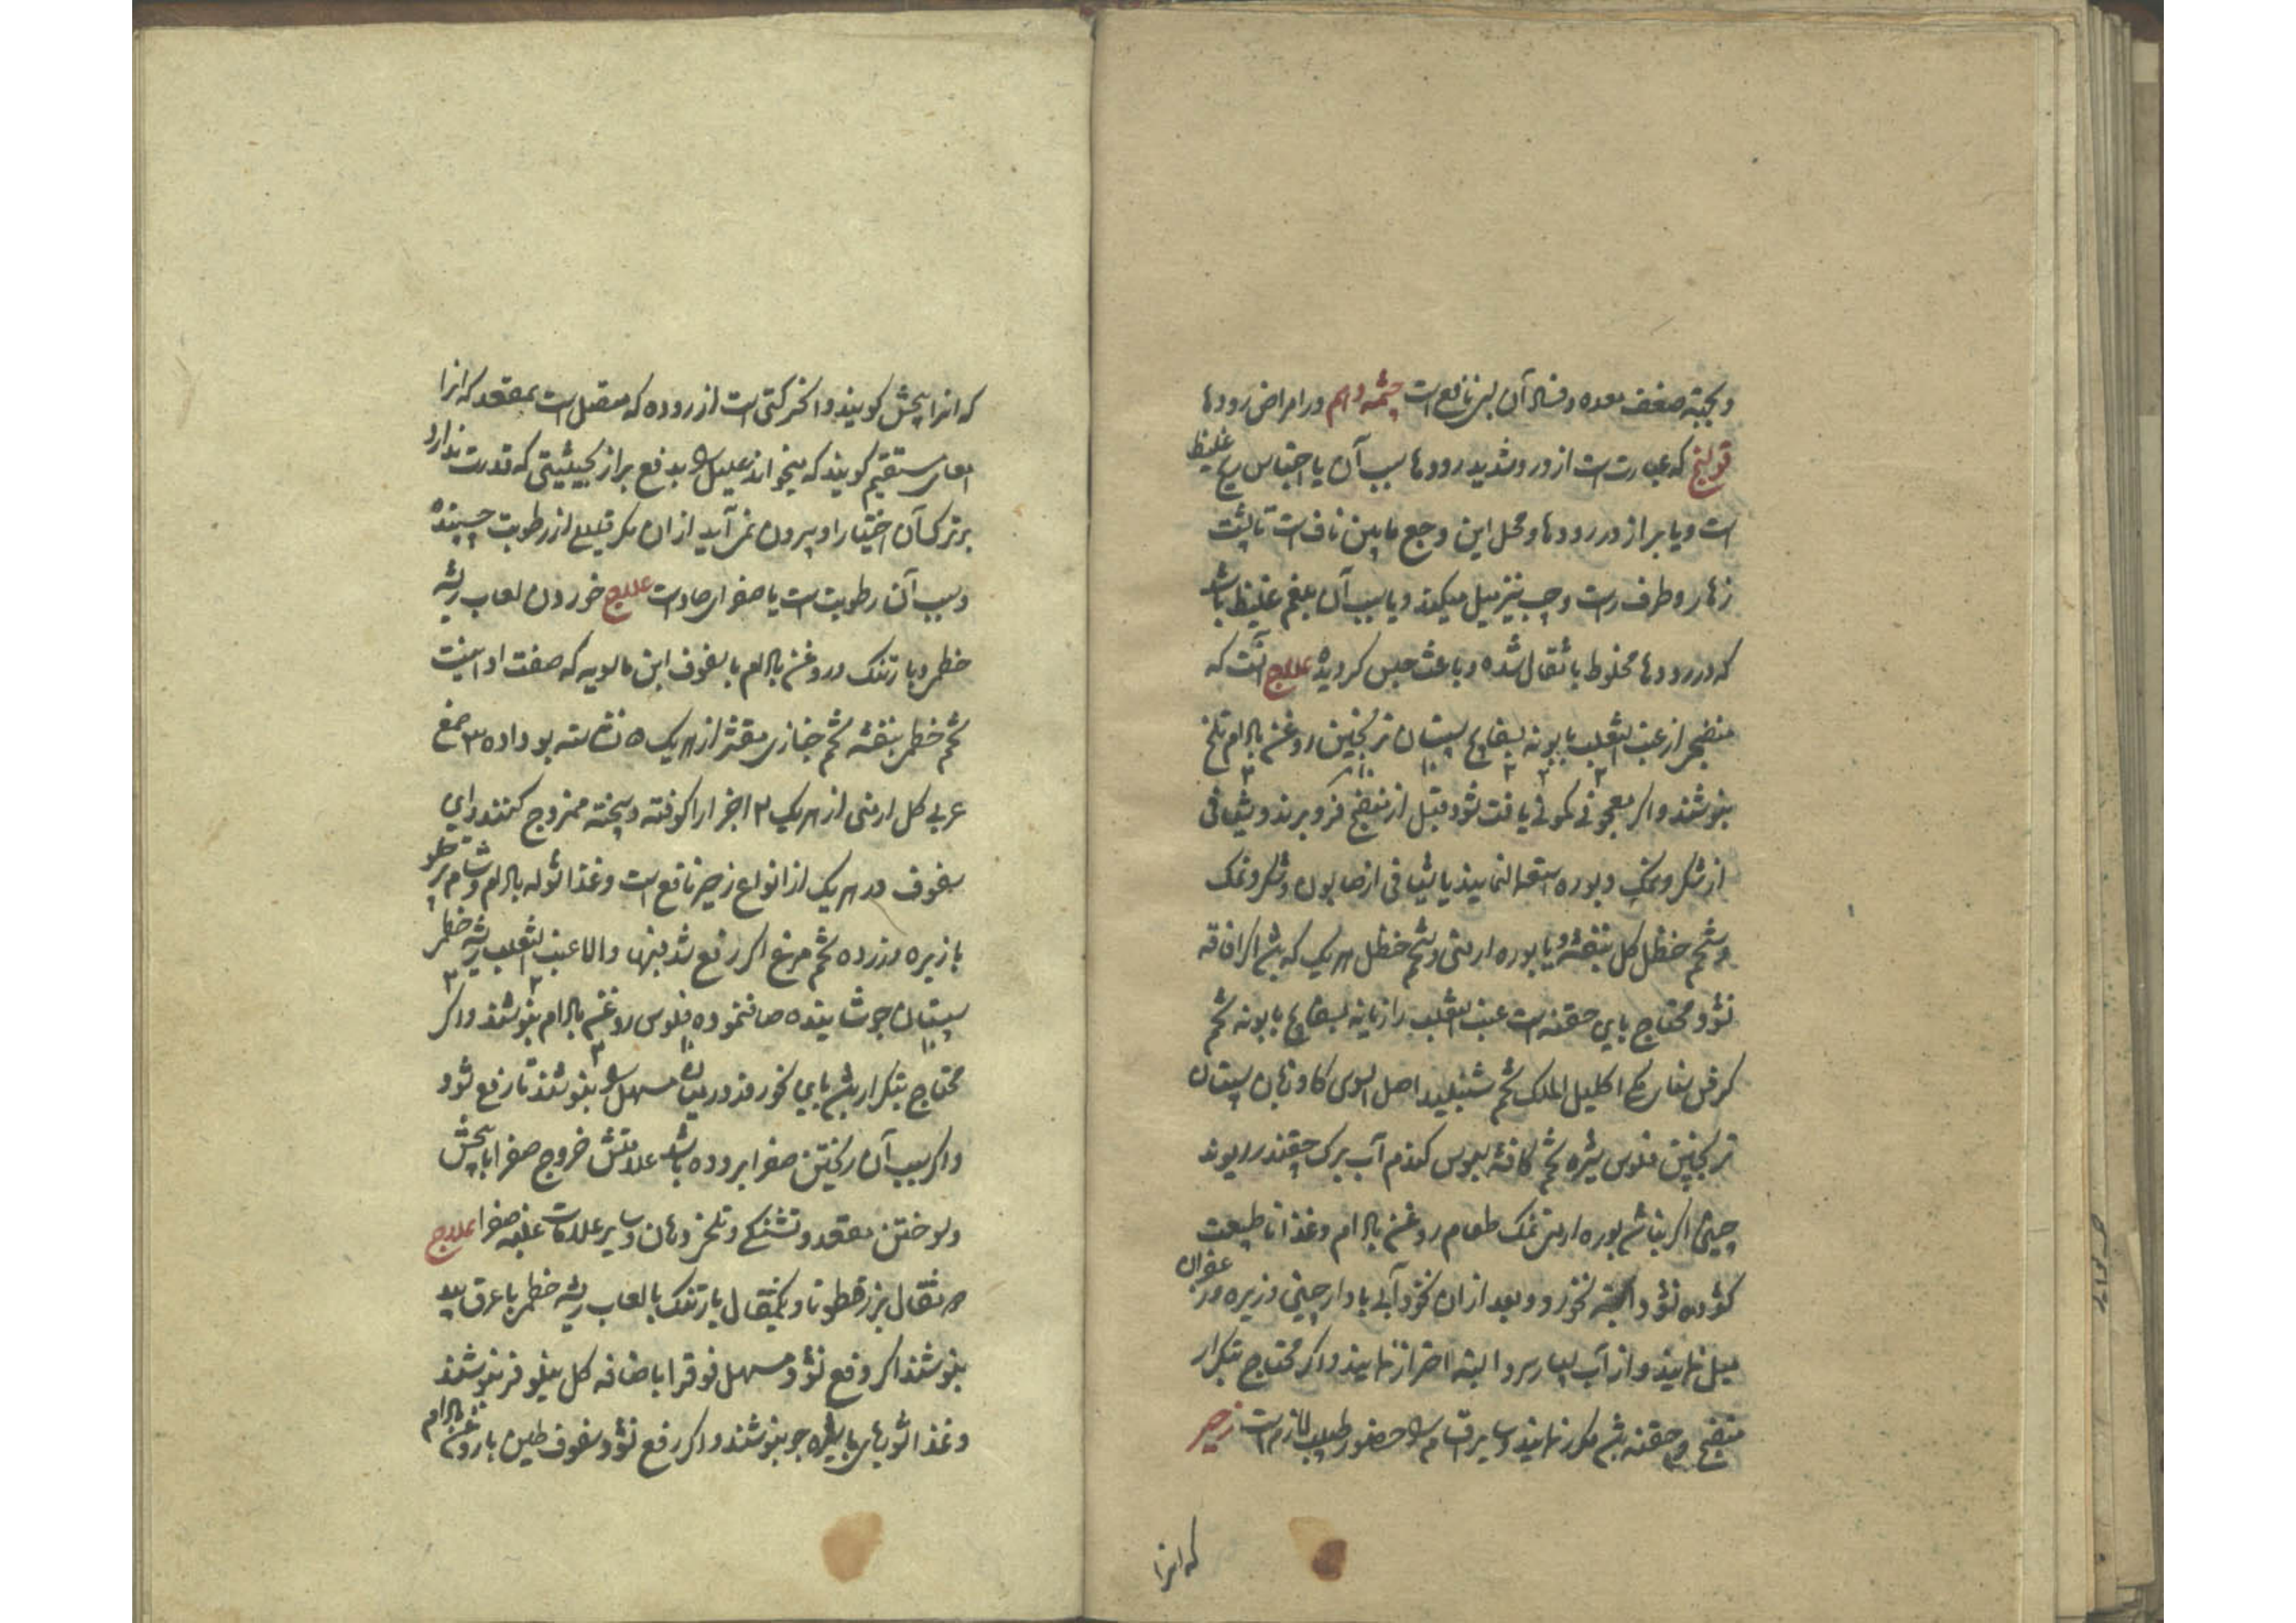 و بجهة ضعف معده و فساد آن بسی نافع است چشمه دهم در امراض رودها
قولنج که عبارتست از درد شدید رودها سبب آن یا احتباس ریح غلیظ
است و یا براز در رودها و محل این وجع مابین نافست تا پشت
زهار و طرف راست و چپ نیز میل میکند و یا سبب آن بلغم غلیظ باشد
که در رودها مخلوط باثقال شده و باعث حبس کردیده علاج آنست که
منضجی از عنب الثعلب بابونه بسفایج سپستان ترنجبین روغن بادام تلخ
بنوشند و اکر معجونی کمونی یافت شود قبل از منضج فرو برند و شیافی
از شکر و نمک و بوره استعمال نمایند یا شیافی از صابون و شکر و نمک
و شحم حنظل کل بنفشه و یا بوره ارمنی و شحم حنظل هریک که باشد اکر افاقه
نشود محتاج بای حقنه است عنب الثعلب رازیانه بسفایج بابونه تخم
کرفس اکلیل الملک تخم شنبلید اصل السوس کاوزبان سپستان
ترنجبین فلوس شیره تخم کافشه سبوس کندم آب برک چقندر ریوند
چینی اکر نباشد بوره ارمنی نمک طعام روغن بادام و غذا تا طبیعت
کشوده نشود البته نخورد و بعد از ان نخود آبی با دارچینی و زیره و زعفران
میل نمایند و از آب بسیار سرد البته احتراز نمایند و اکر محتاج بتکرار
منضج و حقنه باشد مکرر نمایند و سایر اقسام را حضور طبیب لازم است زحیر
که انرا
که انرا پیچش کویند و ان حرکتی است از روده که متصل است بمقعد که انرا
امعای مستقیم کویند که میخواند علیل را بدفع براز بحیثیتی که قدرت ندارد
بر ترک آن اختیارا و بیرون نمی آید از ان مکر قلیلی از رطوبت چسبنده
و سبب آن رطوبت است یا صفرای حاد است علاج خوردن لعاب ریشه
خطمی و بارتنک و روغن بادام با سفوف ابن مالویه که صفت او اینست
تخم خطمی بنفشه تخم خبازی مقشر از هریک ۵ نشاسته بو داده ۳ صمغ
عربی کل ارمنی از هریک ۲ اجزا را کوفته و بیخته ممزوج کنند و این
سفوف در هریک از انواع زحیر نافع است و غذا شوله بادام و شام چلو
با زیره و زرده تخم مرغ اکر رفع شد بنها والا عنب الثعلب ریشه خطمی
سپستان جوشانیده صاف نموده فلوس روغن بادام بنوشند و اکر
محتاج بتکرار باشد بای نحو روز در میان مسهل را بنوشند تا رفع شود
و اکر سبب آن ریختن صفرا بروده باشد علامتش خروج صفرا با پیچش
و سوختن مقعد و تشنکی و تلخی دهان و سایر علامات غلبه صفرا علاج
مثقال بزرقطونا و یکمثقال بارتنک با لعاب ریشه خطمی با عرق بید
بنوشند اکر رفع نشود مسهل فوق را باضافه کل نیلوفر بنوشند
و غذا شوربای با شیره جو بنوشند و اکر رفع نشود سفوف طین با روغن بادام